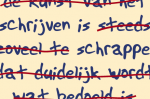 de kunst van het
schrijven is steeds
zoveel te schrappe
dat duidelijk wordt
wat bedoeld is